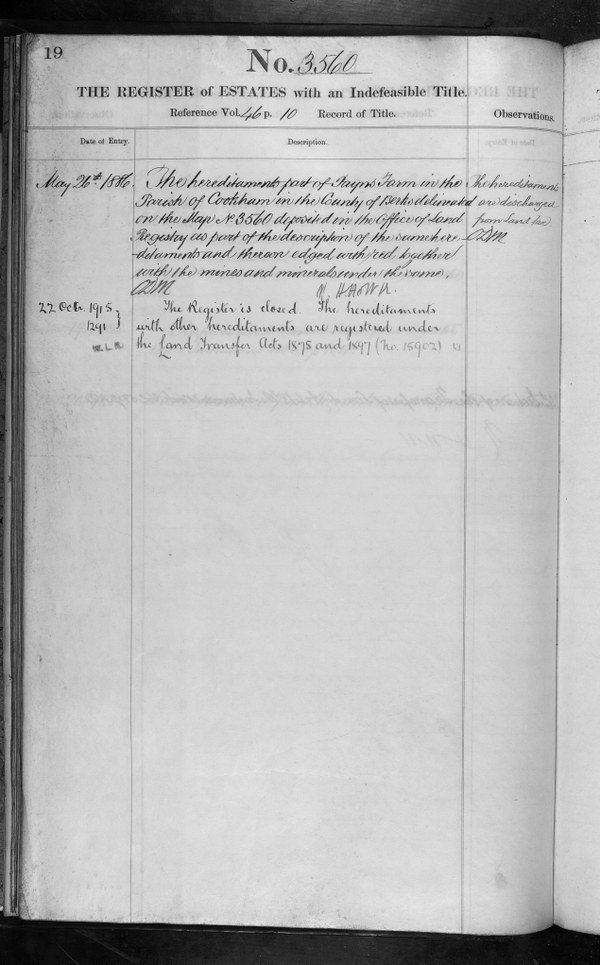 19
No. 3560
THE REGISTER of ESTATES with an Indefeasible Title.
Reference Vol. 46 p. 10 Record of Title.
Observations.
Date of Entry.
Description.
May 26th 1886.
The hereditaments part of Payns Farm in the
Parish of Cookham in the County of Berks delineated
on the Map No 3560 deposited in the Office of Land
Registry as part of the description of the same here
ditaments and thereon edged with red together
with the mines and minerals under the same.
The hereditaments
are discharged
from Land
22 Octr. 1915
1291
W.L.R.
The Register is closed. The hereditaments
with other hereditaments are registered under
the Land Transfer Acts 1875 and 1897 (No. 15902)